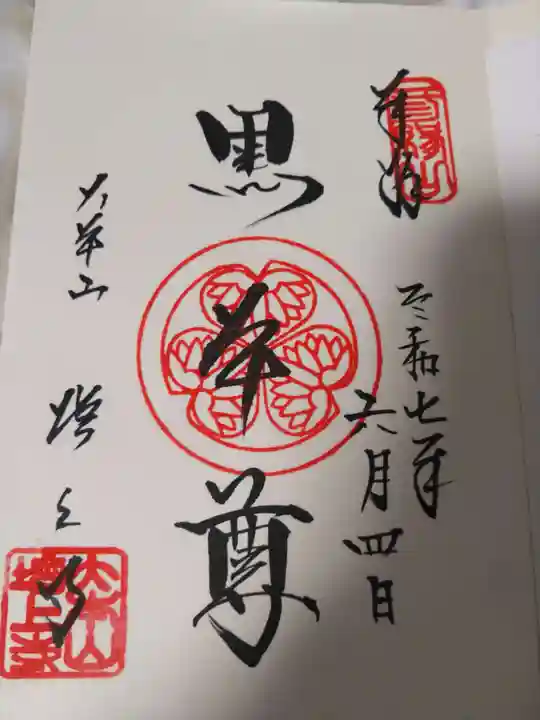 奉拝
三縁山
令和七年
六月四日
黒本尊
大本山 増上寺
大本山
増上寺